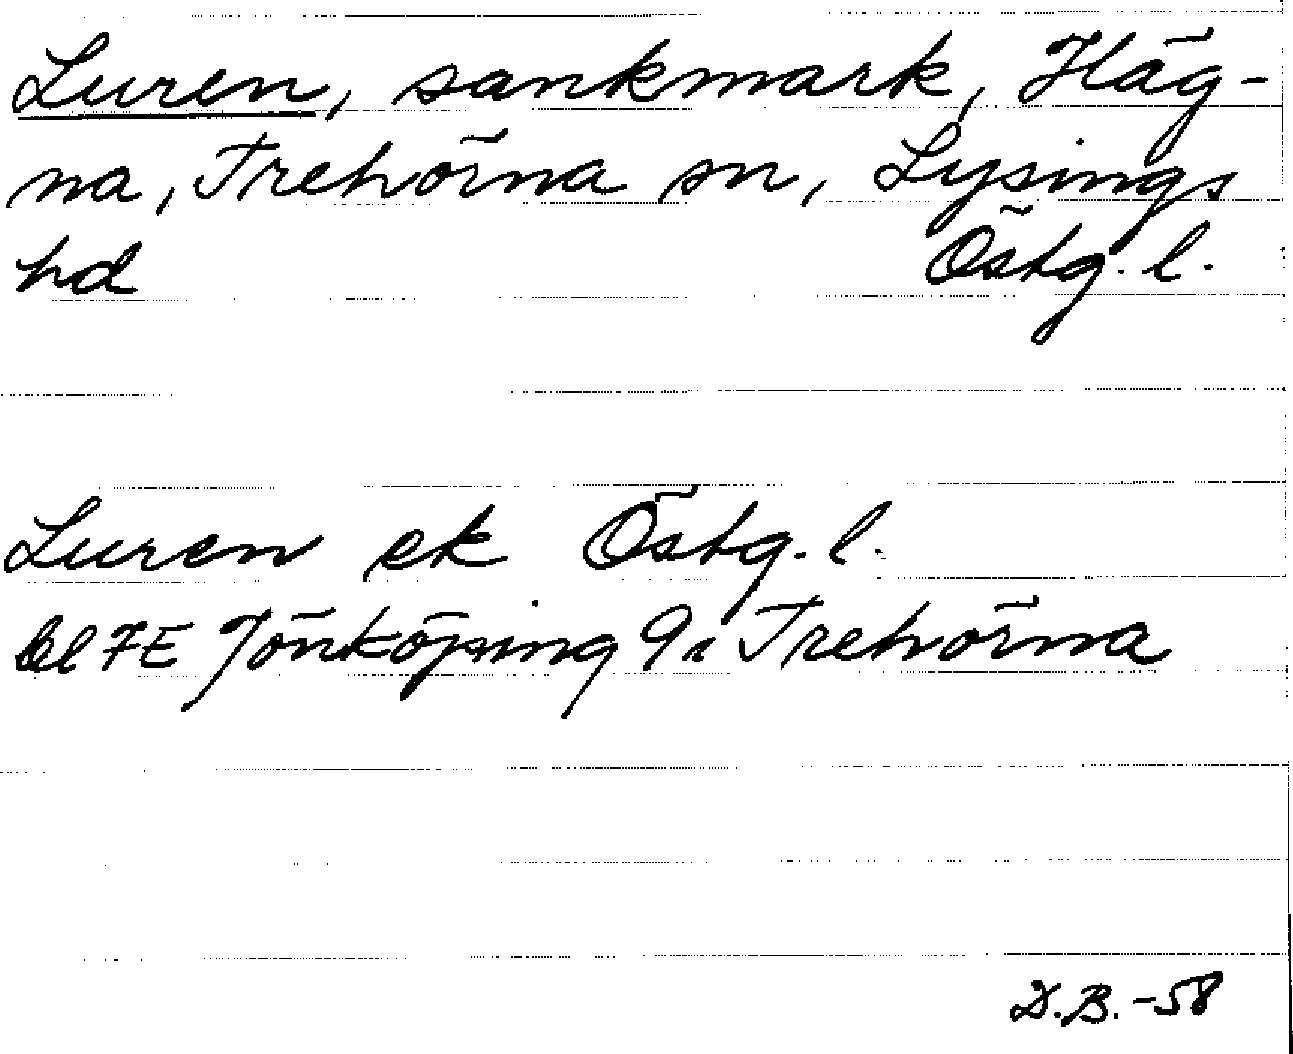 Luren, sankmark, Häg-
na, Trehörna sn, Lysings
hd Östg. l.
Luren ek Östg. l.
bl 7E Jönköping 9i Trehörna
D.B. -58